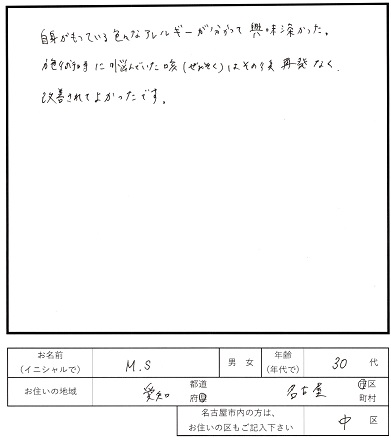 自身がもっている色んなアレルギーが分かって興味深かった。
に悩んでいた咳(ぜんそく)はその後再発なく
改善されてよかったです。
お名前
(イニシャルで)
M.S
男 女
年齢
(年代で)
30 代
お住いの地域
愛知
都道
府県
名古屋
市区
町村
名古屋市内の方は、
お住いの区もご記入下さい
中 区